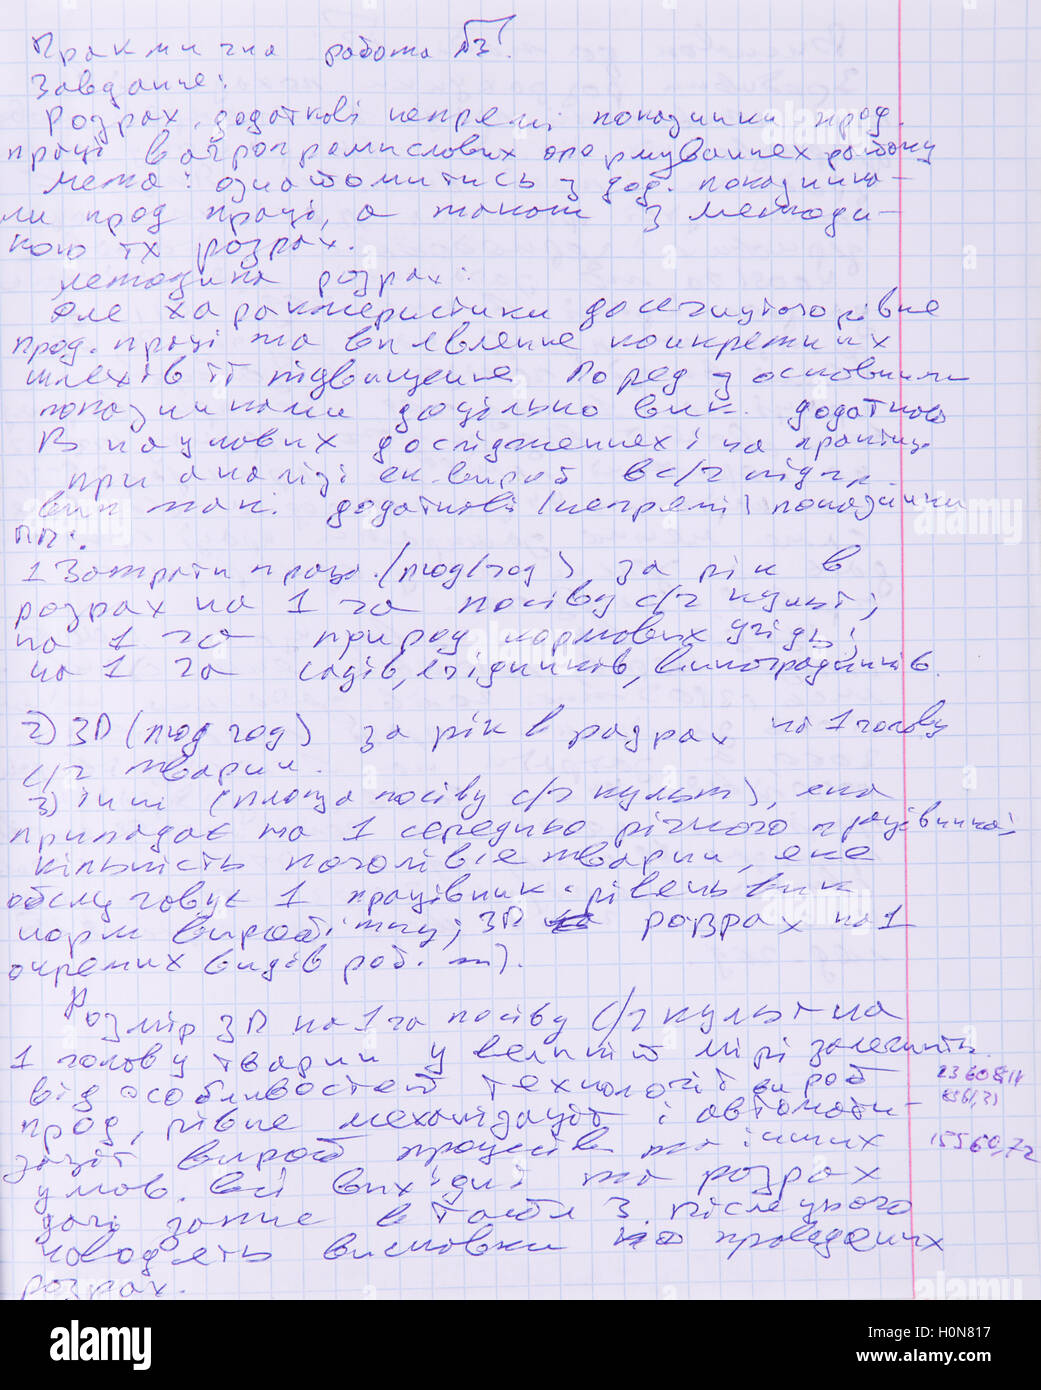 Практична робота №3.
Завдання:
Розрах. додаткові непрямі показники прод.
праці в агропромислових формуваннях району
мета: ознайомитись з дод. показника-
ми прод праці, а також з методи-
кою їх розрах.
методика розрах:
для характеристики досягнутого рівня
прод. праці та виявлення конкретних
шляхів її підвищення Поряд з основними
показниками доцільно вик. додаткові
В наукових дослідженнях і на практиці
при аналізі ек. вироб в с/г підпр.
вик так. додаткові /непрямі/ показники
ПП:
1 Затрати праці /люд/год) за рік в
розрах на 1 га посіву с/г культ;
на 1 га природ кормових угідь;
на 1 га садів, ягідників, виноградників.
2) ЗП (люд год) за рік в розрах на 1 голову
с/г тварин.
3) інші (площа посіву с/г культ), яка
припадає на 1 середньо річного працівника;
кількість поголівя тварин, яке
обслуговує 1 працівник; рівень вик
норм виробітку; ЗП на розрах на 1
окремих видів роб. т).
Розмір ЗП на 1 га посіву с/г культ на
1 голову тварин у великій мірі залежить
від особливостей технології вироб
прод, рівня механізації і автомати-
зації вироб процесів та інших
умов. Всі вихідні та розрах
дані запис в табл 3. після цього
наводять висновки по проведених
розрах.
15560,72
alamy
Image ID: H0N817
www.alamy.com